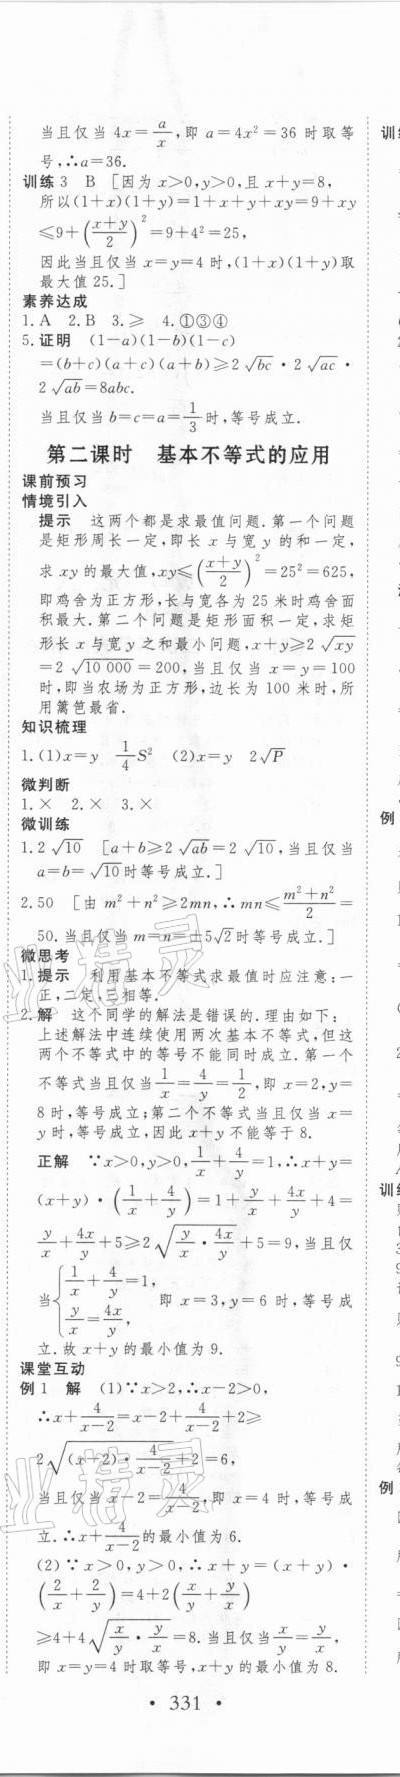 当且仅当 4x=a/x,即 a=4x²=36 时取等
号,∴a=36.
训练3 B [因为 x>0,y>0,且 x+y=8,
所以(1+x)(1+y)=1+x+y+xy=9+xy
≤9+((x+y)/2)²=9+4²=25,
因此当且仅当 x=y=4 时,(1+x)(1+y)取
最大值 25.]
素养达成
1.A 2.B 3.≥ 4.①③④
5.证明 (1-a)(1-b)(1-c)
=(b+c)(a+c)(a+b)≥2√bc·2√ac·
2√ab=8abc.
当且仅当 b=c=a=1/3时,等号成立.
第二课时 基本不等式的应用
课前预习
情境引入
提示 这两个都是求最值问题.第一个问题
是矩形周长一定,即长 x 与宽 y 的和一定,
求 xy 的最大值,xy≤((x+y)/2)²=25²=625,
即鸡舍为正方形,长与宽各为 25 米时鸡舍面
积最大.第二个问题是矩形面积一定,求矩
形长 x 与宽 y 之和最小问题,x+y≥2√xy
=2√10 000=200,当且仅当 x=y=100
时,即当农场为正方形,边长为 100 米时,所
用篱笆最省.
知识梳理
1.(1)x=y 1/4S² (2)x=y 2√P
微判断
1.× 2.× 3.×
微训练
1.2√10 [a+b≥2√ab=2√10,当且仅当
a=b=√10时等号成立.]
2.50 [由 m²+n²≥2mn,∴mn≤(m²+n²)/2=
50.当且仅当 m=n=±5√2时等号成立.]
微思考
1.提示 利用基本不等式求最值时应注意:一
正,二定,三相等.
2.解 这个同学的解法是错误的.理由如下:
上述解法中连续使用两次基本不等式,但这
两个不等式中的等号不能同时成立.第一个
不等式当且仅当1/x=4/y=1/2,即 x=2,y=
8时,等号成立;第二个不等式当且仅当 x=
y时,等号成立,因此 x+y 不能等于 8.
正解 ∵x>0,y>0,1/x+4/y=1,∴x+y=
(x+y)·(1/x+4/y)=1+y/x+4x/y+4=
y/x+4x/y+5≥2√(y/x·4x/y)+5=9,当且仅
当{1/x+4/y=1, y/x=4x/y, 即 x=3,y=6 时,等号成
立.故 x+y 的最小值为 9.
课堂互动
例1 解 (1)∵x>2,∴x-2>0,
∴x+4/(x-2)=x-2+4/(x-2)+2≥
2√((x-2)·4/(x-2))+2=6,
当且仅当 x-2=4/(x-2),即 x=4 时,等号成
立.∴x+4/(x-2)的最小值为 6.
(2)∵x>0,y>0,∴x+y=(x+y)·
(2/x+2/y)=4+2(x/y+y/x)
≥4+4√(x/y·y/x)=8.当且仅当x/y=y/x,
即 x=y=4 时取等号,x+y 的最小值为 8.
• 331 •
训练
例
训练
例
业精灵
业精灵